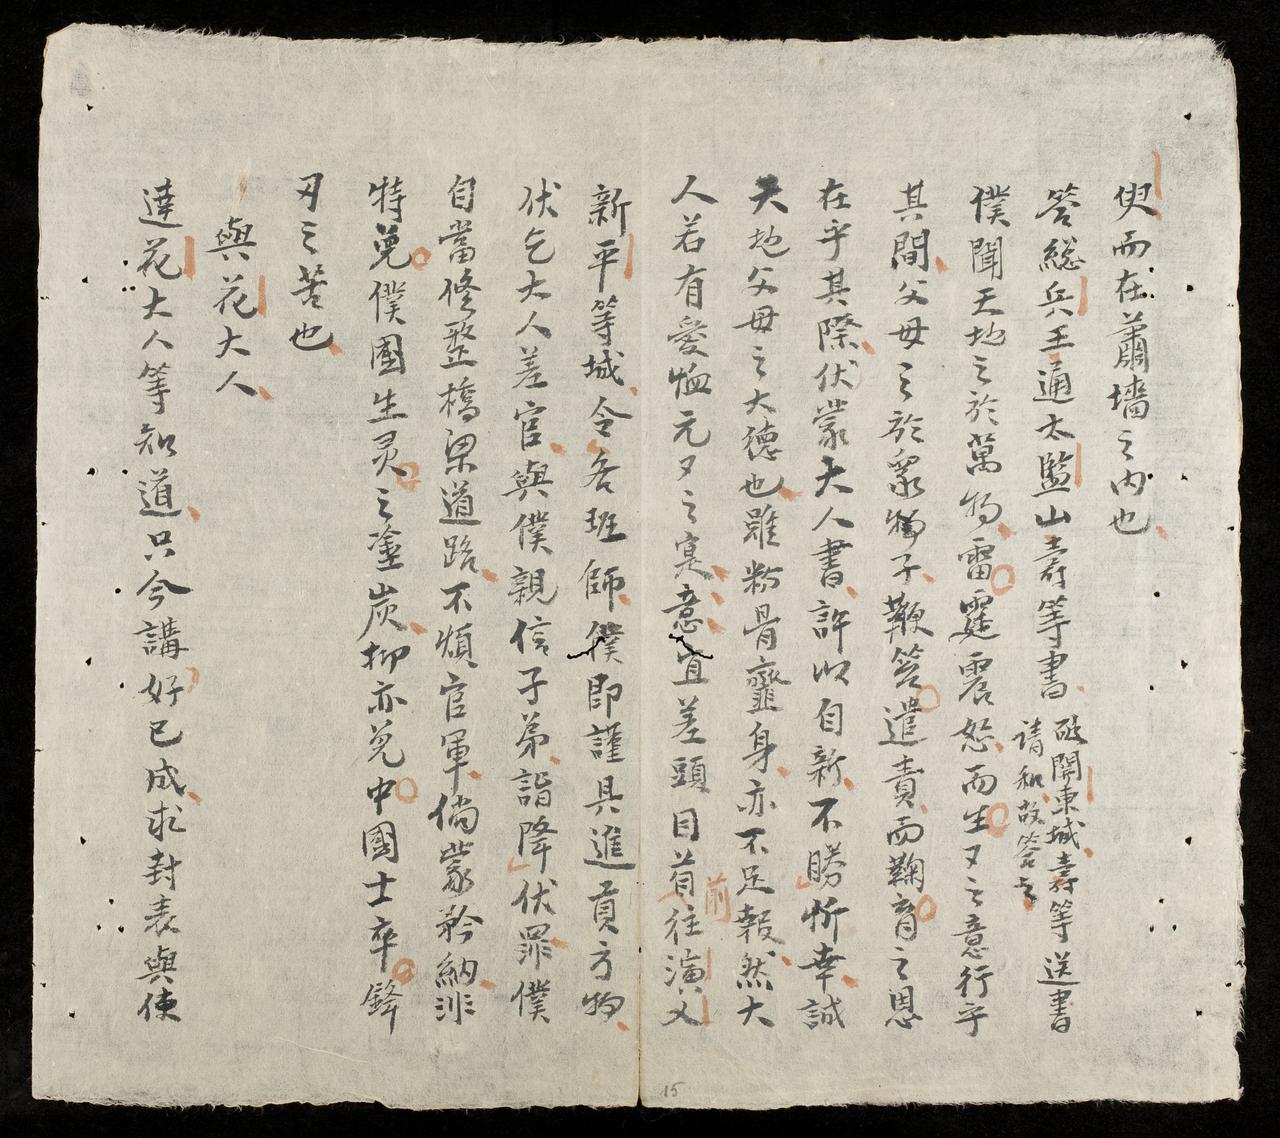 臾而在蕭墻之内也
答総兵王通太監山壽等書
破開東城壽等送書
請和故答之
僕聞天地之於萬物雷霆震怒而生々之意行乎
其間父母之於衆子鞭笞遣責而鞠育之恩
在乎其際伏蒙大人書許以自新不勝忻幸誠
天地父母之大德也雖粉骨虀身亦不足報然大
人若有愛恤元々之寔意宜差頭目前徃演义
新平等城令各班師僕即謹具進貢方物
伏乞大人差官與僕親信子弟詣降伏罪僕
自當修整橋梁道路不煩官軍倘蒙矜納非
特免僕國生灵之塗炭抑亦免中國士卒鋒
刃之苦也
與花大人
達花大人等知道只今講好已成求封表與使
15